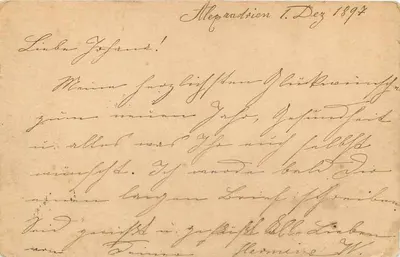 Alexandrien 1. Dez 1897
Liebe Johana!
Meine herzlichsten Glückwünsch-
zum neuen Jahr, Gesundheit
u. alles was Ihr euch selbst
wünscht. Ich werde bald Dir
einen langen Brief schreiben.
Seid gegrüßt u. geküßt alle Lieben
von Hermine W.